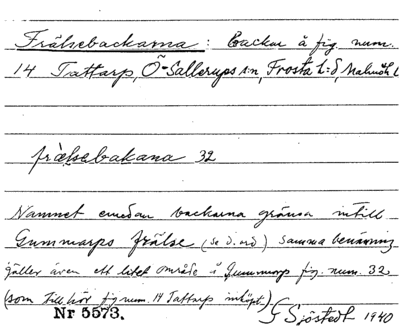 Frälsebackarna: backar å fig num.
14 Tattarp, Ö-Sallerups s:n, Frosta h:d, Malmöh L
frälsebakana 32
Namnet emedan backarna gränsa intill
Gummarps frälse (se d. ord) samma benämning
gäller även ett litet område i Gummarp fig. num. 32
(som tillhör fig num. 14 Tattarp inköpt.)
Nr 5573. G Sjöstedt 1940